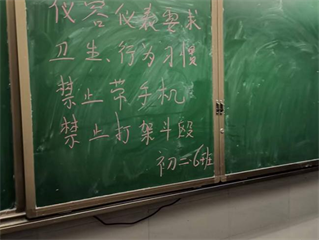 仪容仪表要求
卫生、行为习惯
禁止带手机
禁止打架斗殴
初二·6班